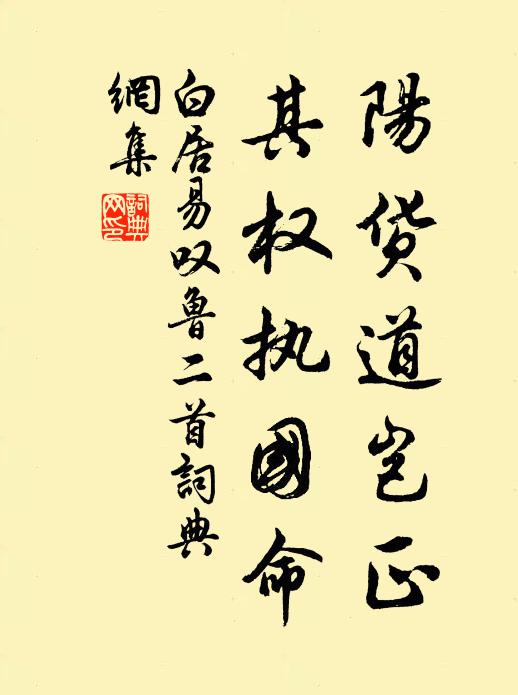 陽货道岂正
其权执國命
白居易叹魯二首詞典
網集
詞典
网印